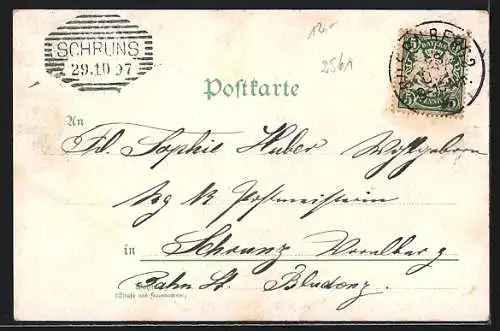 SCHRUNS
29.10 97
12.-
256A
BAYERN
5 PFENNIG 5
Postkarte
An
Frl. Sophie Huber Wohlgeboren
Postmeisterin
in Schrunz Vorarlberg
Bahn St. Bludenz
(Straße und Hausnummer)